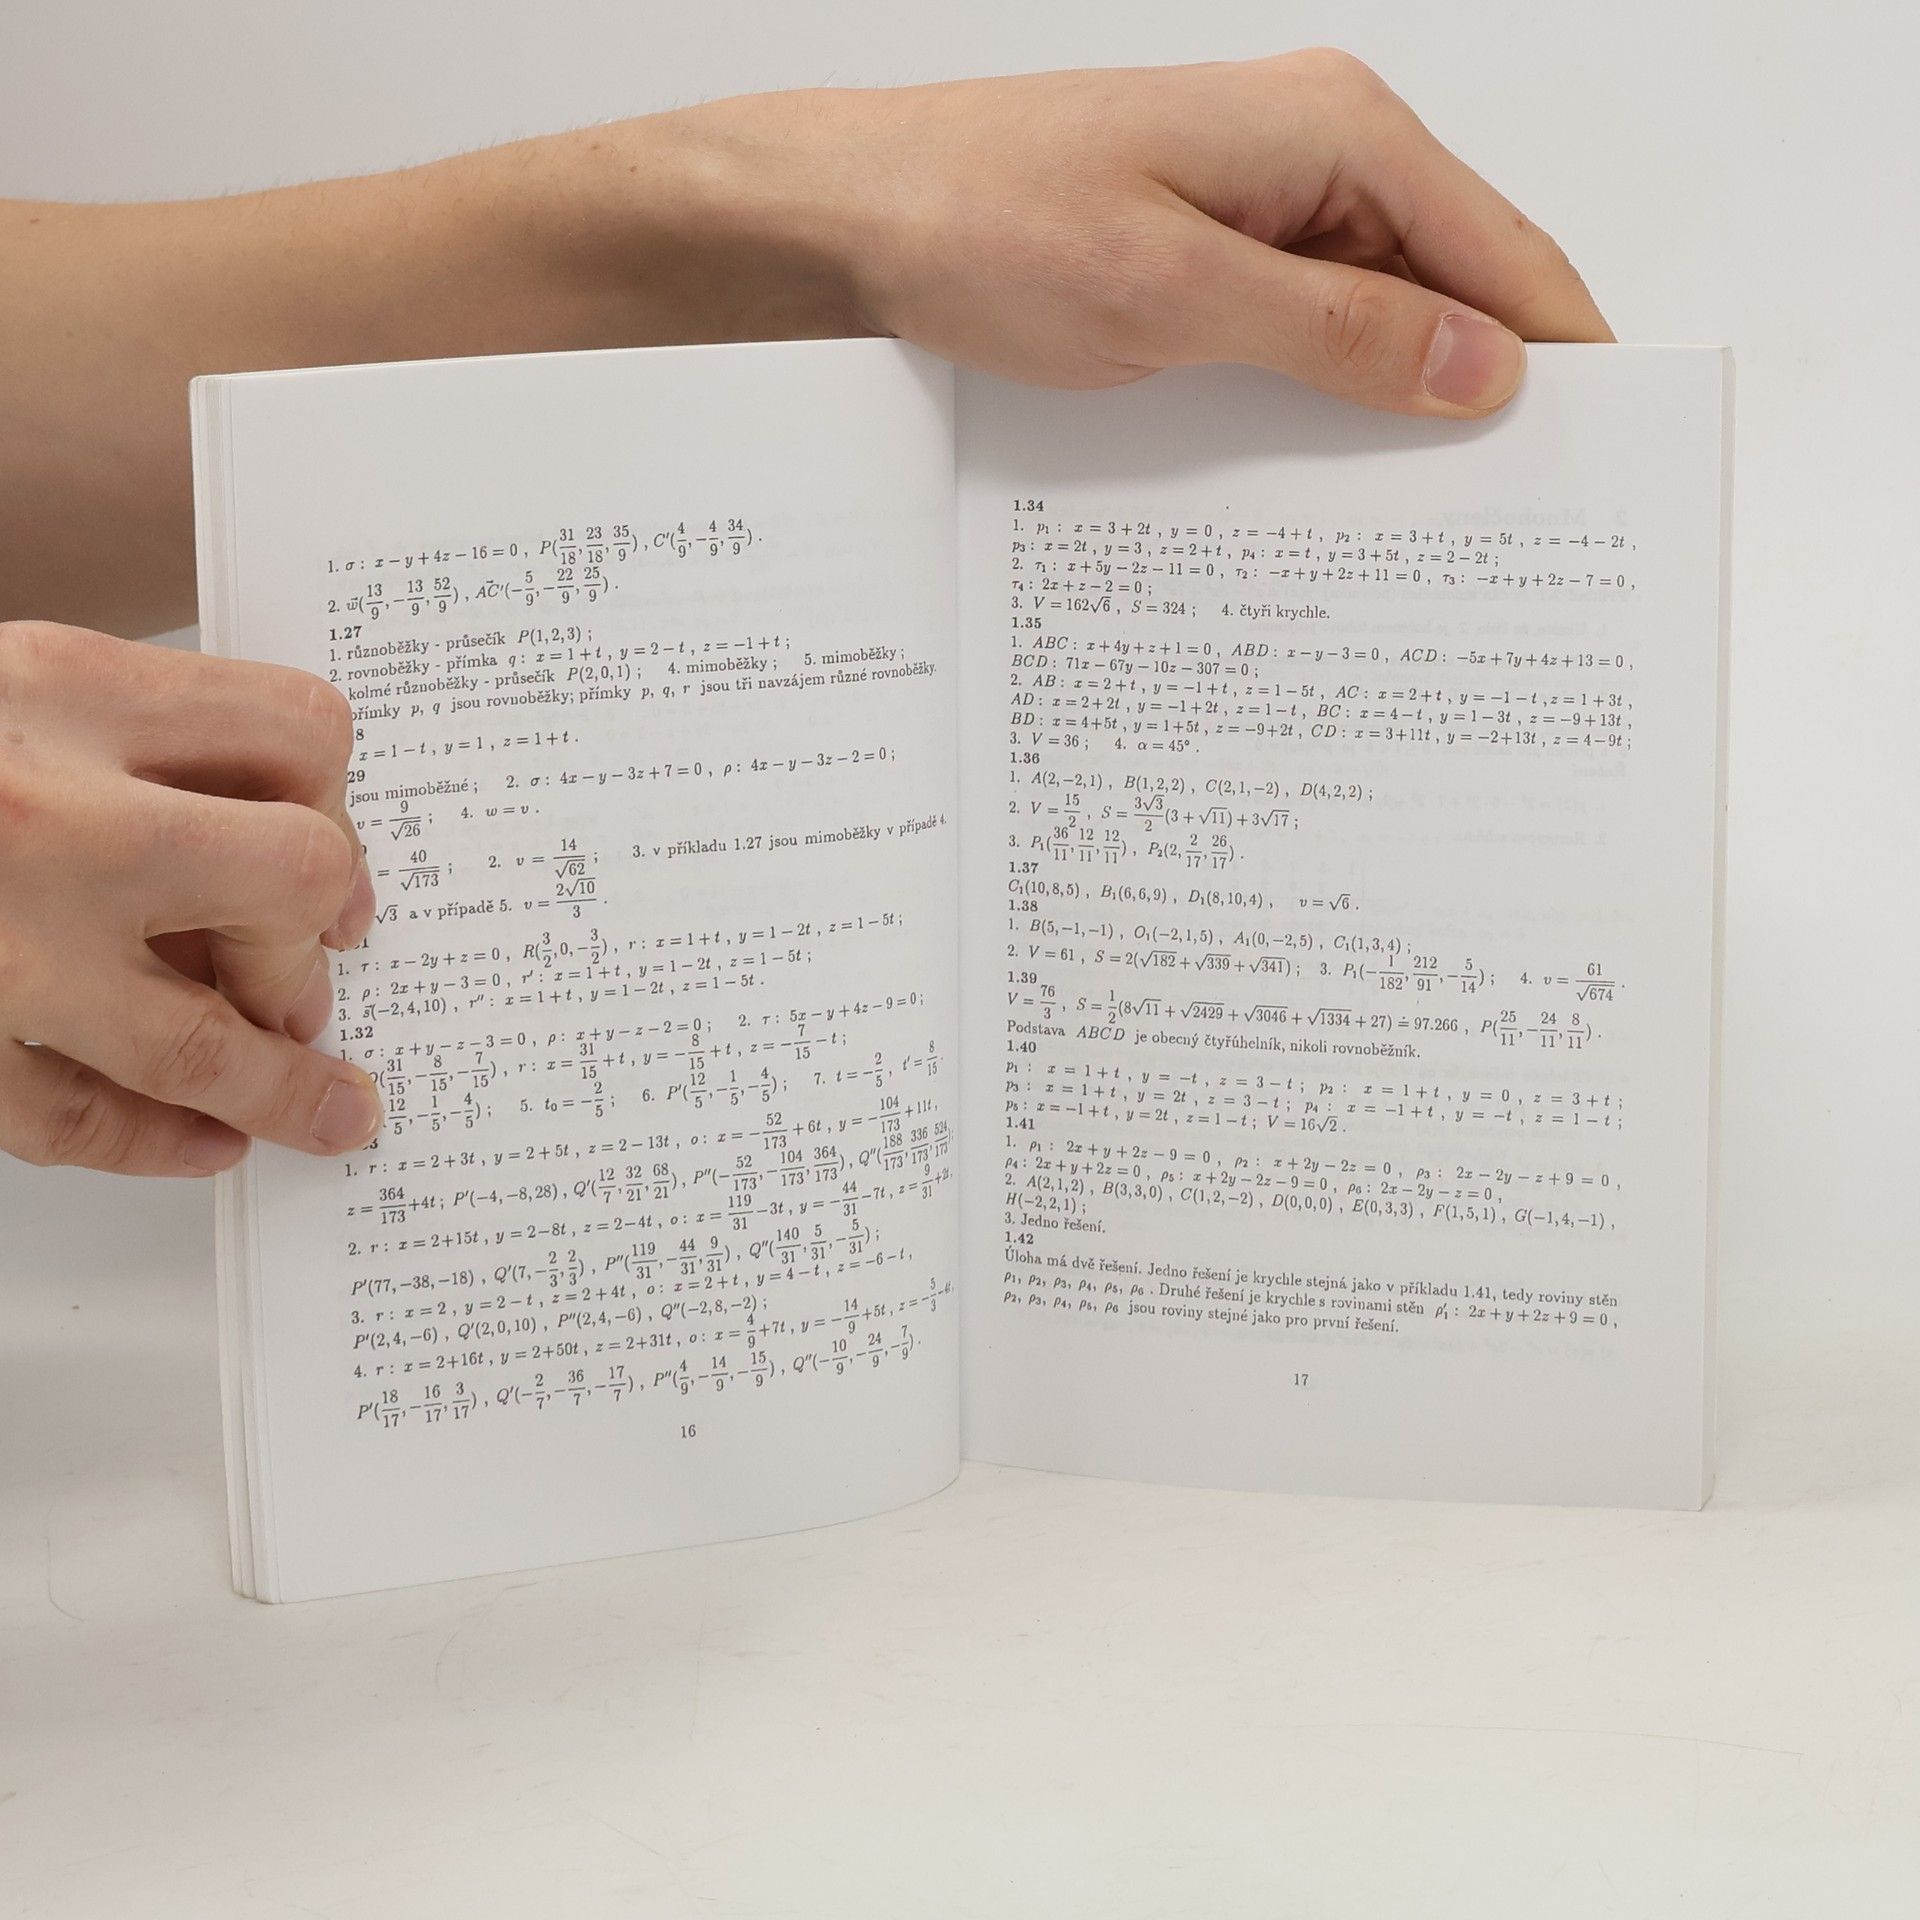 1. σ : x − y + 4z − 16 = 0 , P(31/18, 23/18, 35/9) , C′(4/9, −4/9, 34/9) .
2. w⃗(13/9, −13/9, 52/9) , AC⃗′(−5/9, −22/9, 25/9) .
1.27
1. různoběžky - průsečík P(1,2,3) ;
2. rovnoběžky - přímka q : x = 1 + t , y = 2 − t , z = −1 + t ;
kolmé různoběžky - průsečík P(2,0,1) ; 4. mimoběžky ; 5. mimoběžky ;
přímky p, q jsou rovnoběžky; přímky p, q, r jsou tři navzájem různé rovnoběžky.
8
x = 1 − t , y = 1 , z = 1 + t .
29
jsou mimoběžné ; 2. σ : 4x − y − 3z + 7 = 0 , ρ : 4x − y − 3z − 2 = 0 ;
v = 9/√26 ; 4. w = v .
= 40/√173 ; 2. v = 14/√62 ; 3. v příkladu 1.27 jsou mimoběžky v případě 4.
√3 a v případě 5. v = 2√10/3 .
1
1. τ : x − 2y + z = 0 , R(3/2, 0, −3/2) , r : x = 1 + t , y = 1 − 2t , z = 1 − 5t ;
2. ρ : 2x + y − 3 = 0 , r′ : x = 1 + t , y = 1 − 2t , z = 1 − 5t ;
3. s⃗(−2,4,10) , r″ : x = 1 + t , y = 1 − 2t , z = 1 − 5t .
1.32
1. σ : x + y − z − 3 = 0 , ρ : x + y − z − 2 = 0 ; 2. τ : 5x − y + 4z − 9 = 0 ;
(31/15, −8/15, −7/15) , r : x = 31/15 + t , y = −8/15 + t , z = −7/15 − t ;
12/5, −1/5, −4/5) ; 5. t₀ = −2/5 ; 6. P′(12/5, −1/5, −4/5) ; 7. t = −2/5 , t′ = 8/15 .
3
1. r : x = 2 + 3t , y = 2 + 5t , z = 2 − 13t , o : x = −52/173 + 6t , y = −104/173 + 11t ,
z = 364/173 + 4t ; P′(−4,−8,28) , Q′(12/7, 32/21, 68/21) , P″(−52/173, −104/173, 364/173) , Q″(188/173, 336/173, 524/173) ;
2. r : x = 2+15t , y = 2−8t , z = 2−4t , o : x = 119/31 − 3t , y = −44/31 − 7t , z = 9/31 + 2t ,
P′(77,−38,−18) , Q′(7, −2/3, 2/3) , P″(119/31, −44/31, 9/31) , Q″(140/31, 5/31, −5/31) ;
3. r : x = 2 , y = 2 − t , z = 2 + 4t , o : x = 2 + t , y = 4 − t , z = −6 − t ,
P′(2,4,−6) , Q′(2,0,10) , P″(2,4,−6) , Q″(−2,8,−2) ;
4. r : x = 2+16t , y = 2+50t , z = 2+31t , o : x = 4/9 + 7t , y = −14/9 + 5t , z = −5/3 − 4t ,
P′(18/17, −16/17, 3/17) , Q′(−2/7, −36/7, −17/7) , P″(4/9, −14/9, −15/9) , Q″(−10/9, −24/9, −7/9) .
16
1.34
1. p₁ : x = 3 + 2t , y = 0 , z = −4 + t , p₂ : x = 3 + t , y = 5t , z = −4 − 2t ,
p₃ : x = 2t , y = 3 , z = 2 + t , p₄ : x = t , y = 3 + 5t , z = 2 − 2t ;
2. τ₁ : x + 5y − 2z − 11 = 0 , τ₂ : −x + y + 2z + 11 = 0 , τ₃ : −x + y + 2z − 7 = 0 ,
τ₄ : 2x + z − 2 = 0 ;
3. V = 162√6 , S = 324 ; 4. čtyři krychle.
1.35
1. ABC : x + 4y + z + 1 = 0 , ABD : x − y − 3 = 0 , ACD : −5x + 7y + 4z + 13 = 0 ,
BCD : 71x − 67y − 10z − 307 = 0 ;
2. AB : x = 2 + t , y = −1 + t , z = 1 − 5t , AC : x = 2 + t , y = −1 − t , z = 1 + 3t ,
AD : x = 2 + 2t , y = −1 + 2t , z = 1 − t , BC : x = 4 − t , y = 1 − 3t , z = −9 + 13t ,
BD : x = 4+5t , y = 1+5t , z = −9+2t , CD : x = 3+11t , y = −2+13t , z = 4−9t ;
3. V = 36 ; 4. α = 45° .
1.36
1. A(2,−2,1) , B(1,2,2) , C(2,1,−2) , D(4,2,2) ;
2. V = 15/2 , S = 3√3/2 (3 + √11) + 3√17 ;
3. P₁(36/11, 12/11, 12/11) , P₂(2, 2/17, 26/17) .
1.37
C₁(10,8,5) , B₁(6,6,9) , D₁(8,10,4) , v = √6 .
1.38
1. B(5,−1,−1) , O₁(−2,1,5) , A₁(0,−2,5) , C₁(1,3,4) ;
2. V = 61 , S = 2(√182 + √339 + √341) ; 3. P₁(−1/182, 212/91, −5/14) ; 4. v = 61/√674 .
1.39
V = 76/3 , S = 1/2 (8√11 + √2429 + √3046 + √1334 + 27) ≐ 97.266 , P(25/11, −24/11, 8/11) .
Podstava ABCD je obecný čtyřúhelník, nikoli rovnoběžník.
1.40
p₁ : x = 1 + t , y = −t , z = 3 − t ; p₂ : x = 1 + t , y = 0 , z = 3 + t ;
p₃ : x = 1 + t , y = 2t , z = 3 − t ; p₄ : x = −1 + t , y = −t , z = 1 − t ;
p₅ : x = −1 + t , y = 2t , z = 1 − t ; V = 16√2 .
1.41
1. ρ₁ : 2x + y + 2z − 9 = 0 , ρ₂ : x + 2y − 2z = 0 , ρ₃ : 2x − 2y − z + 9 = 0 ,
ρ₄ : 2x + y + 2z = 0 , ρ₅ : x + 2y − 2z − 9 = 0 , ρ₆ : 2x − 2y − z = 0 ,
2. A(2,1,2) , B(3,3,0) , C(1,2,−2) , D(0,0,0) , E(0,3,3) , F(1,5,1) , G(−1,4,−1) ,
H(−2,2,1) ;
3. Jedno řešení.
1.42
Úloha má dvě řešení. Jedno řešení je krychle stejná jako v příkladu 1.41, tedy roviny stěn
ρ₁, ρ₂, ρ₃, ρ₄, ρ₅, ρ₆ . Druhé řešení je krychle s rovinami stěn ρ′₁ : 2x + y + 2z + 9 = 0 ,
ρ₂, ρ₃, ρ₄, ρ₅, ρ₆ jsou roviny stejné jako pro první řešení.
17